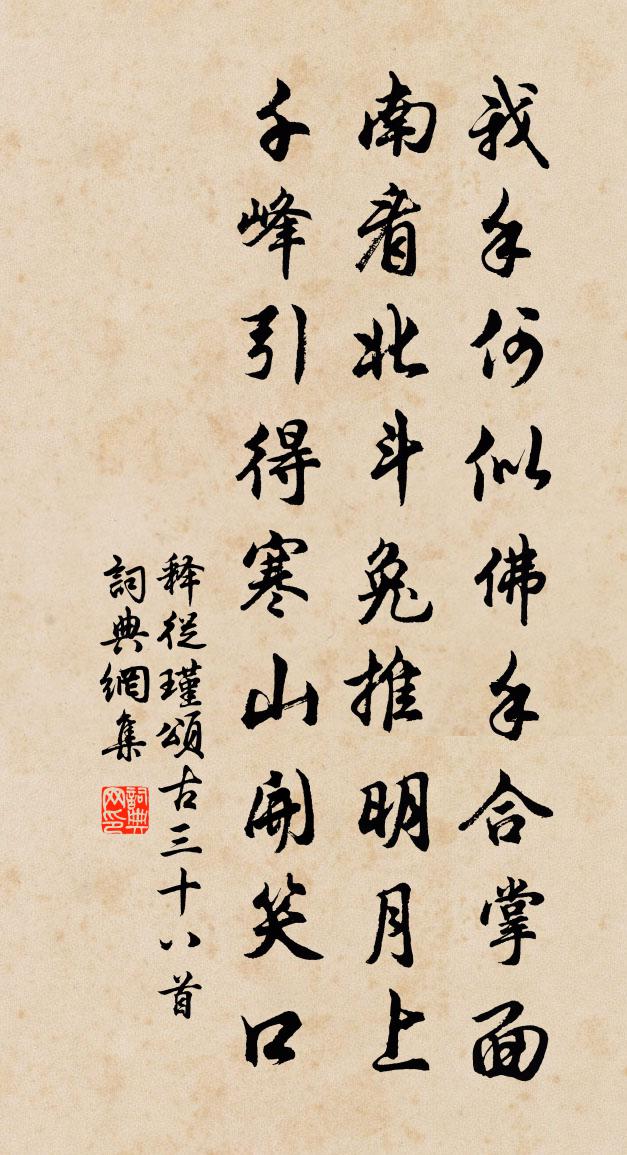 我手何似佛手合掌面
南看北斗兔推明月上
千峰引得寒山開笑口
释從瑾頌古三十八首
詞典網集
詞典网印